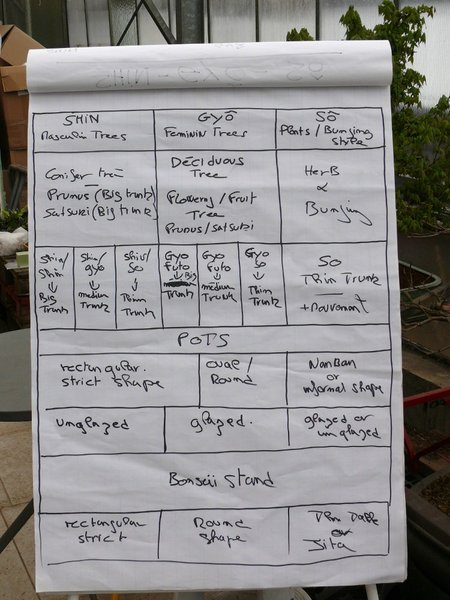 SHIN
Masculin Trees
GYÔ
Feminin Trees
SÔ
Plants / Bunjing
Conifer tree
Prunus (Big trunk)
Satsuki (Big trunk)
Déciduous
Tree
Flowering / Fruit
Tree
Prunus / Satsuki
Herb
&
Bunjing
Shin/
Shin
↓
Big
Trunk
Shin/
gyo
↓
medium
Trunk
Shin/
So
↓
Thin
Trunk
Gyo
futo
↓ Big
Trunk
Gyo
futo
↓
medium
Trunk
Gyo
So
↓
Thin
Trunk
So
Thin Trunk
POTS
rectangular.
strict shape
Oval /
Round
NanBan
or
informal shape
unglazed
glazed.
glazed or
unglazed
Bonsaii stand
rectangular
strict
Round
shape
or
Jita